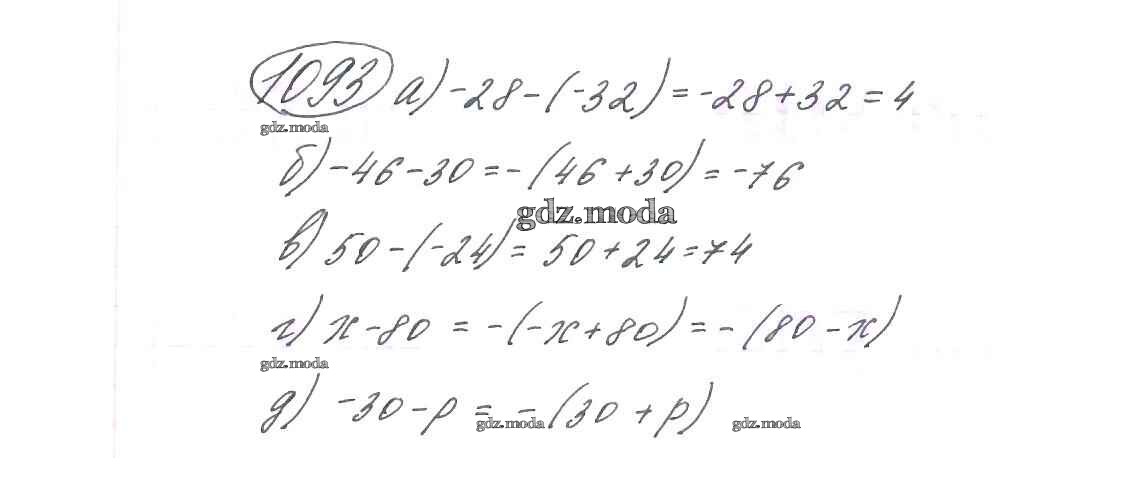 1093 а) -28-(-32)=-28+32=4
gdz.moda
б) -46-30=-(46+30)=-76
gdz.moda
в) 50-(-24)=50+24=74
г) x-80=-(-x+80)=-(80-x)
gdz.moda
д) -30-p=-(30+p)
gdz.moda gdz.moda